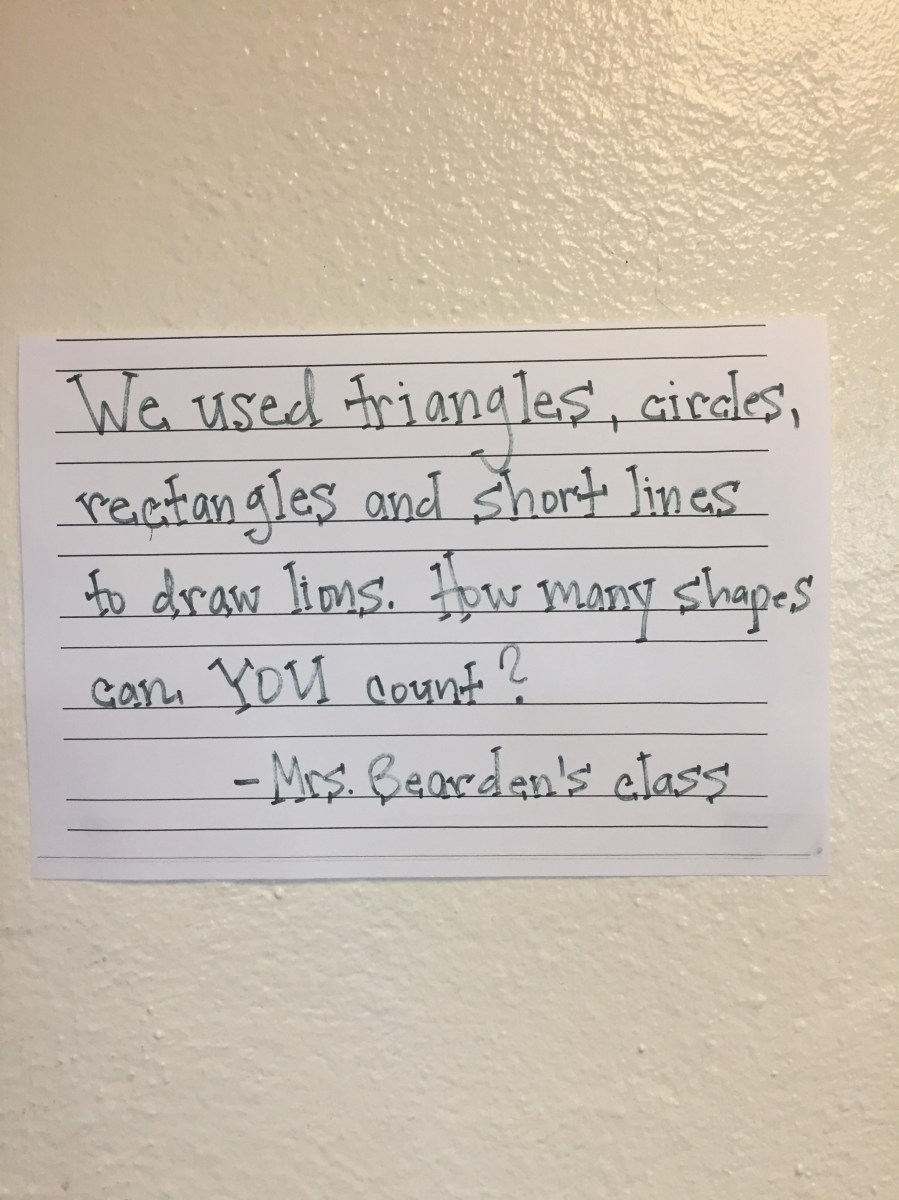 We used triangles, circles,
rectangles and short lines
to draw lions. How many shapes
can YOU count?
-Mrs. Bearden's class